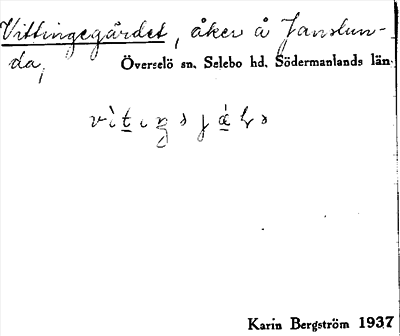 Vittingegärdet, åker å Janslun-
da,
Överselö sn, Selebo hd, Södermanlands län
Karin Bergström 1937